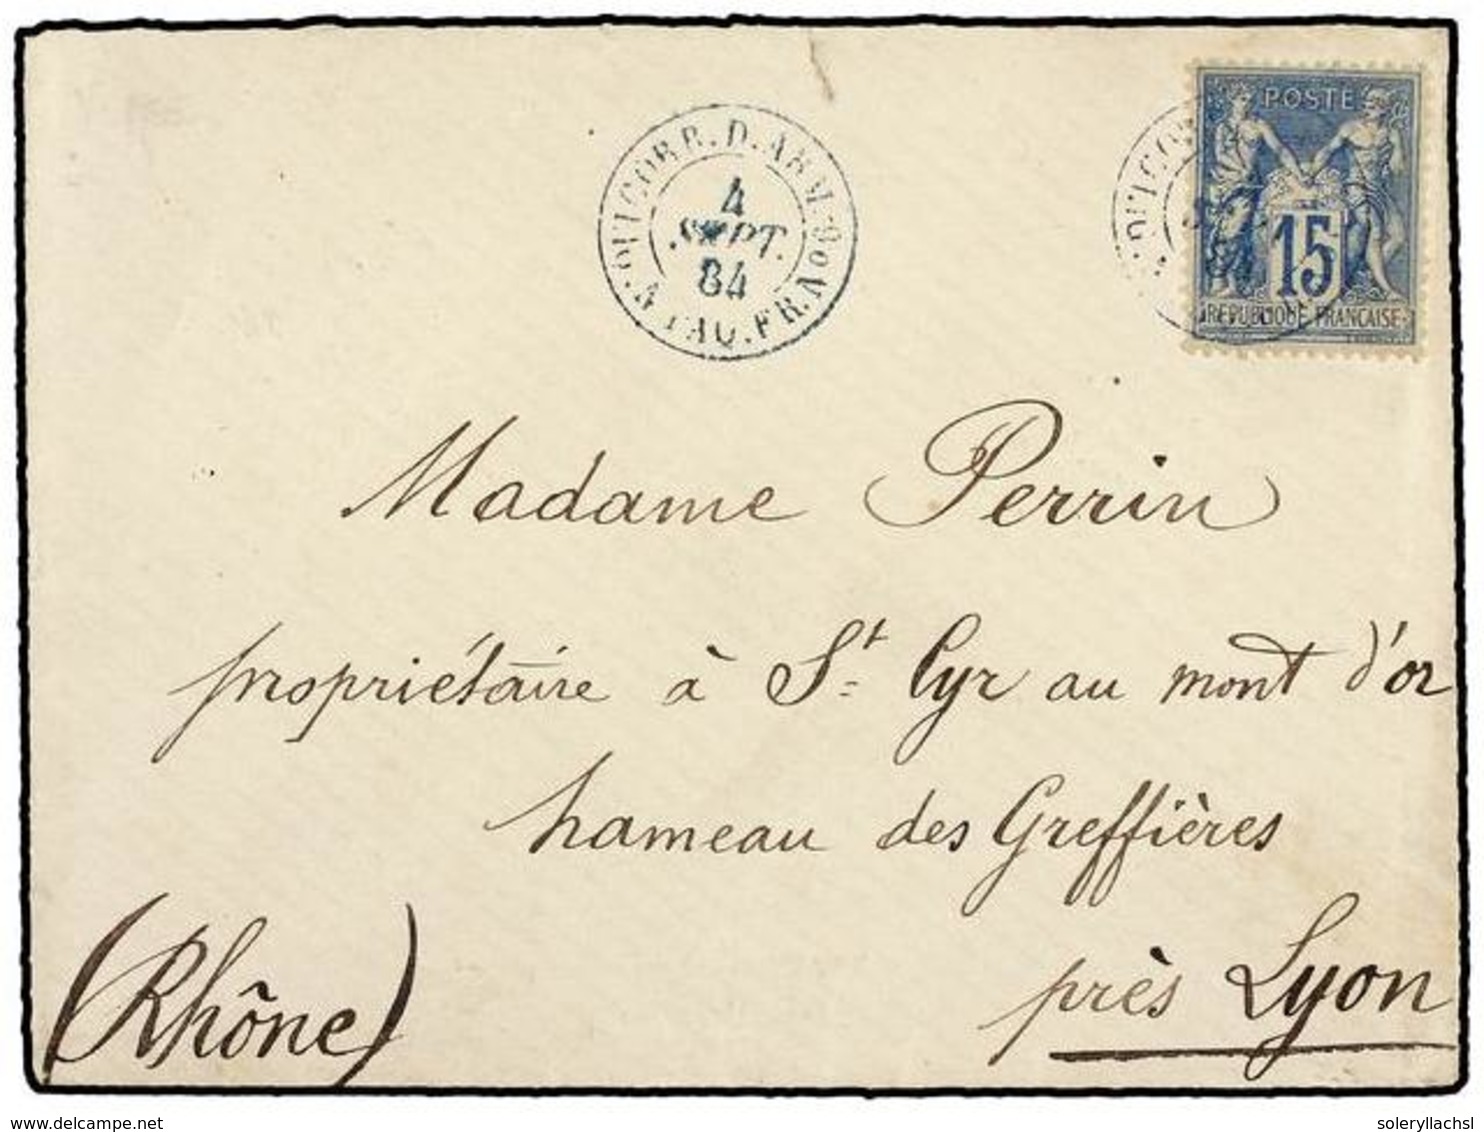 CORR. D. ARM.
PAQ. FR. No 6
4
SEPT.
84
POSTE
15
REPUBLIQUE FRANÇAISE
Madame Perrin
propriétaire à St Cyr au mont d'or
hameau des Greffières
près Lyon
(Rhône)
© delcampe.net
soleryllachsl